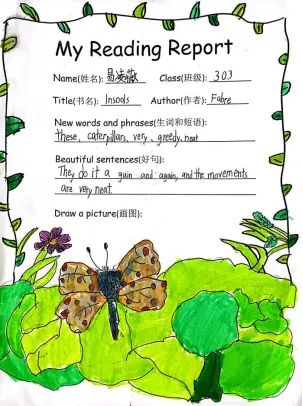 My Reading Report
Name(姓名): 易凌薇 Class(班级): 303
Title(书名): Insools Author(作者): Fabre
New words and phrases(生词和短语):
these, caterpillars, very, greedy. neat
Beautiful sentences(好句):
They do it a guin and again, and the movements
are very neat
Draw a picture(画图):